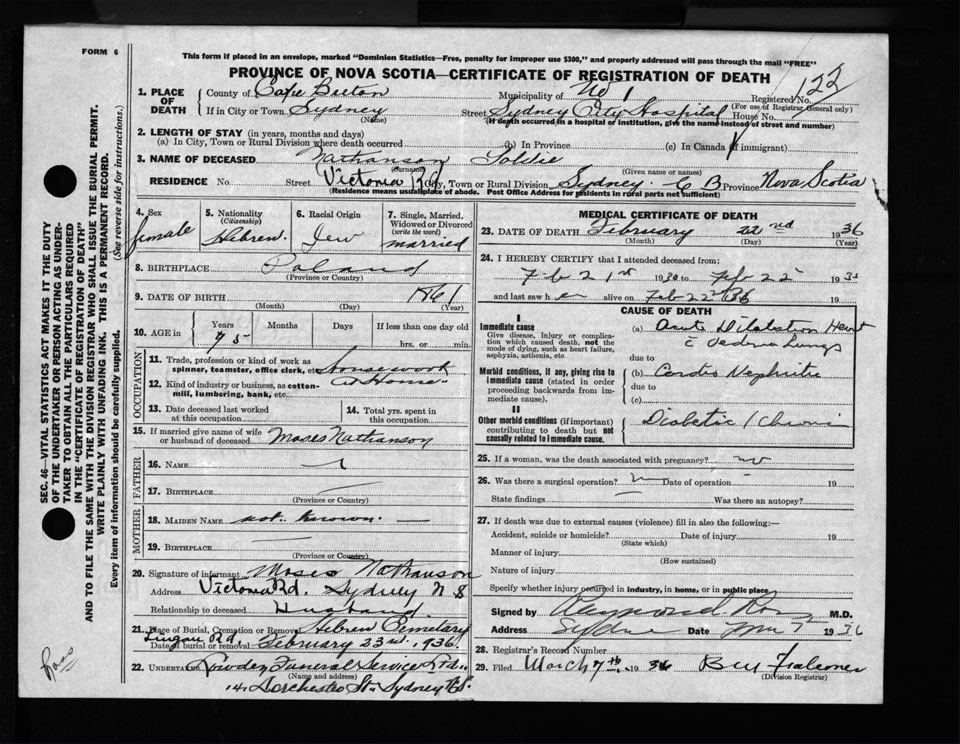 FORM 6
This form if placed in an envelope, marked "Dominion Statistics—Free, penalty for improper use $300," and properly addressed will pass through the mail "FREE"
PROVINCE OF NOVA SCOTIA—CERTIFICATE OF REGISTRATION OF DEATH
1. PLACE OF DEATH
County of Cape Breton Municipality of No 1 Registered No. 122
(For use of Registrar General only)
If in City or Town Sydney Street Sydney City Hospital House No.
(Name) (If death occurred in a hospital or institution, give the name instead of street and number)
2. LENGTH OF STAY (in years, months and days)
(a) In City, Town or Rural Division where death occurred (b) In Province (c) In Canada (if immigrant)
3. NAME OF DECEASED Nathanson Goldie
(Surname) (Given name or names)
RESIDENCE No. Street Victoria Rd City, Town or Rural Division Sydney C B Province Nova Scotia
(Residence means usual place of abode. Post Office Address for residents in rural parts not sufficient)
4. Sex
female
5. Nationality
(Citizenship)
Hebrew
6. Racial Origin
Jew
7. Single, Married, Widowed or Divorced
(write the word)
married
8. BIRTHPLACE Poland
(Province or Country)
9. DATE OF BIRTH 1861
(Month) (Day) (Year)
10. AGE in
Years Months Days If less than one day
75 hrs. or min.
OCCUPATION
11. Trade, profession or kind of work as spinner, teamster, office clerk, etc. Housework
12. Kind of industry or business, as cotton-mill, lumbering, bank, etc. at Home
13. Date deceased last worked at this occupation
14. Total yrs. spent in this occupation
15. If married give name of wife or husband of deceased Moses Nathanson
FATHER
16. NAME
17. BIRTHPLACE
(Province or Country)
MOTHER
18. MAIDEN NAME not known
19. BIRTHPLACE
(Province or Country)
20. Signature of informant Moses Nathanson
Address Victoria Rd. Sydney N S
Relationship to deceased Husband
21. Place of Burial, Cremation or Removal Hebrew Cemetery
Lingan Rd.
Date of burial or removal February 23rd. 1936
22. UNDERTAKER Funeral Service Ltd.
(Name and address)
Dorchester St. Sydney N.S.
MEDICAL CERTIFICATE OF DEATH
23. DATE OF DEATH February 22nd 1936
(Month) (Day) (Year)
24. I HEREBY CERTIFY that I attended deceased from:
Feb 21st 19 to Feb 22 19
and last saw her alive on Feb 22 19
CAUSE OF DEATH
I
Immediate cause
Give disease, injury or complication which caused death, not the mode of dying, such as heart failure, asphyxia, asthenia, etc.
(a) Acute Dilatation Heart
Lungs
due to
Morbid conditions, if any, giving rise to immediate cause (stated in order proceeding backwards from immediate cause).
(b) Cardio Nephritis
due to
(c)
II
Other morbid conditions (if important) contributing to death but not causally related to immediate cause.
Diabetic
25. If a woman, was the death associated with pregnancy? no
26. Was there a surgical operation? Date of operation 19
State findings Was there an autopsy?
27. If death was due to external causes (violence) fill in also the following:—
Accident, suicide or homicide? Date of injury 19
(State which)
Manner of injury
(How sustained)
Nature of injury
Specify whether injury occurred in industry, in home, or in public place
Signed by Raymond M.D.
Address Sydney Date 7 1936
28. Registrar's Record Number
29. Filed March 7th 1936 Falconer
(Division Registrar)
SEC. 46—VITAL STATISTICS ACT MAKES IT THE DUTY OF THE UNDERTAKER OR PERSON ACTING AS UNDERTAKER TO OBTAIN ALL THE PARTICULARS REQUIRED IN THE "CERTIFICATE OF REGISTRATION OF DEATH" AND TO FILE THE SAME WITH THE DIVISION REGISTRAR WHO SHALL ISSUE THE BURIAL PERMIT.
WRITE PLAINLY WITH UNFADING INK. THIS IS A PERMANENT RECORD.
Every item of information should be carefully supplied. (See reverse side for instructions.)